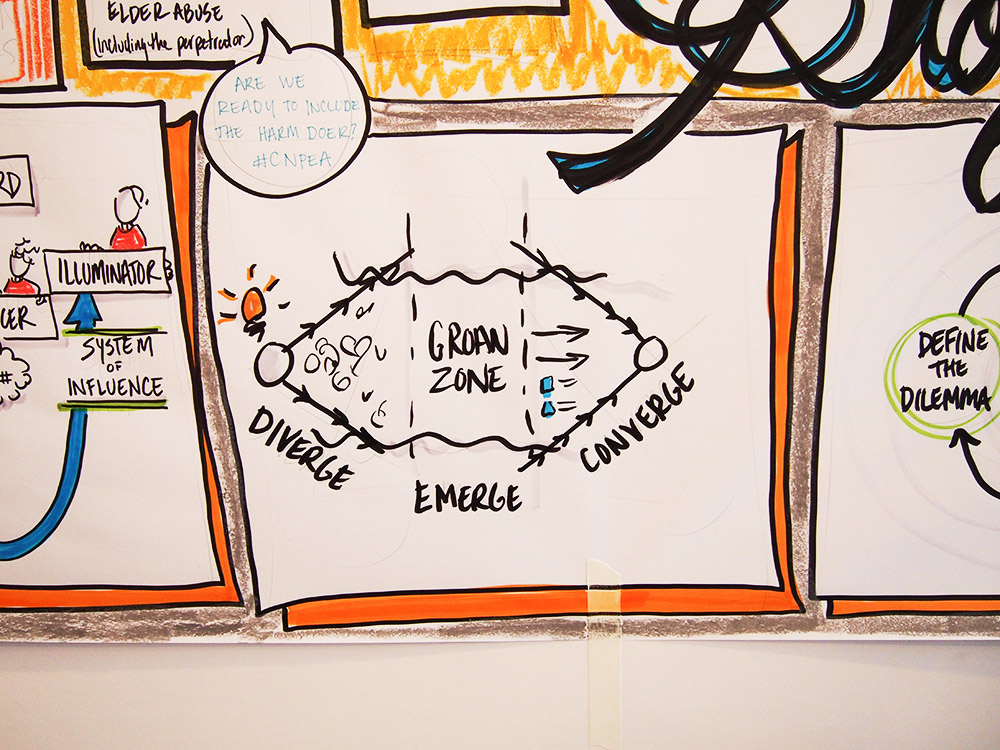 ELDER ABUSE
(including the perpetrator)
ARE WE
READY TO INCLUDE
THE HARM DOER?
#CNPEA
RD
ILLUMINATOR
CER
SYSTEM
OF
INFLUENCE
#
GROAN
ZONE
DIVERGE
EMERGE
CONVERGE
DEFINE
THE
DILEMMA